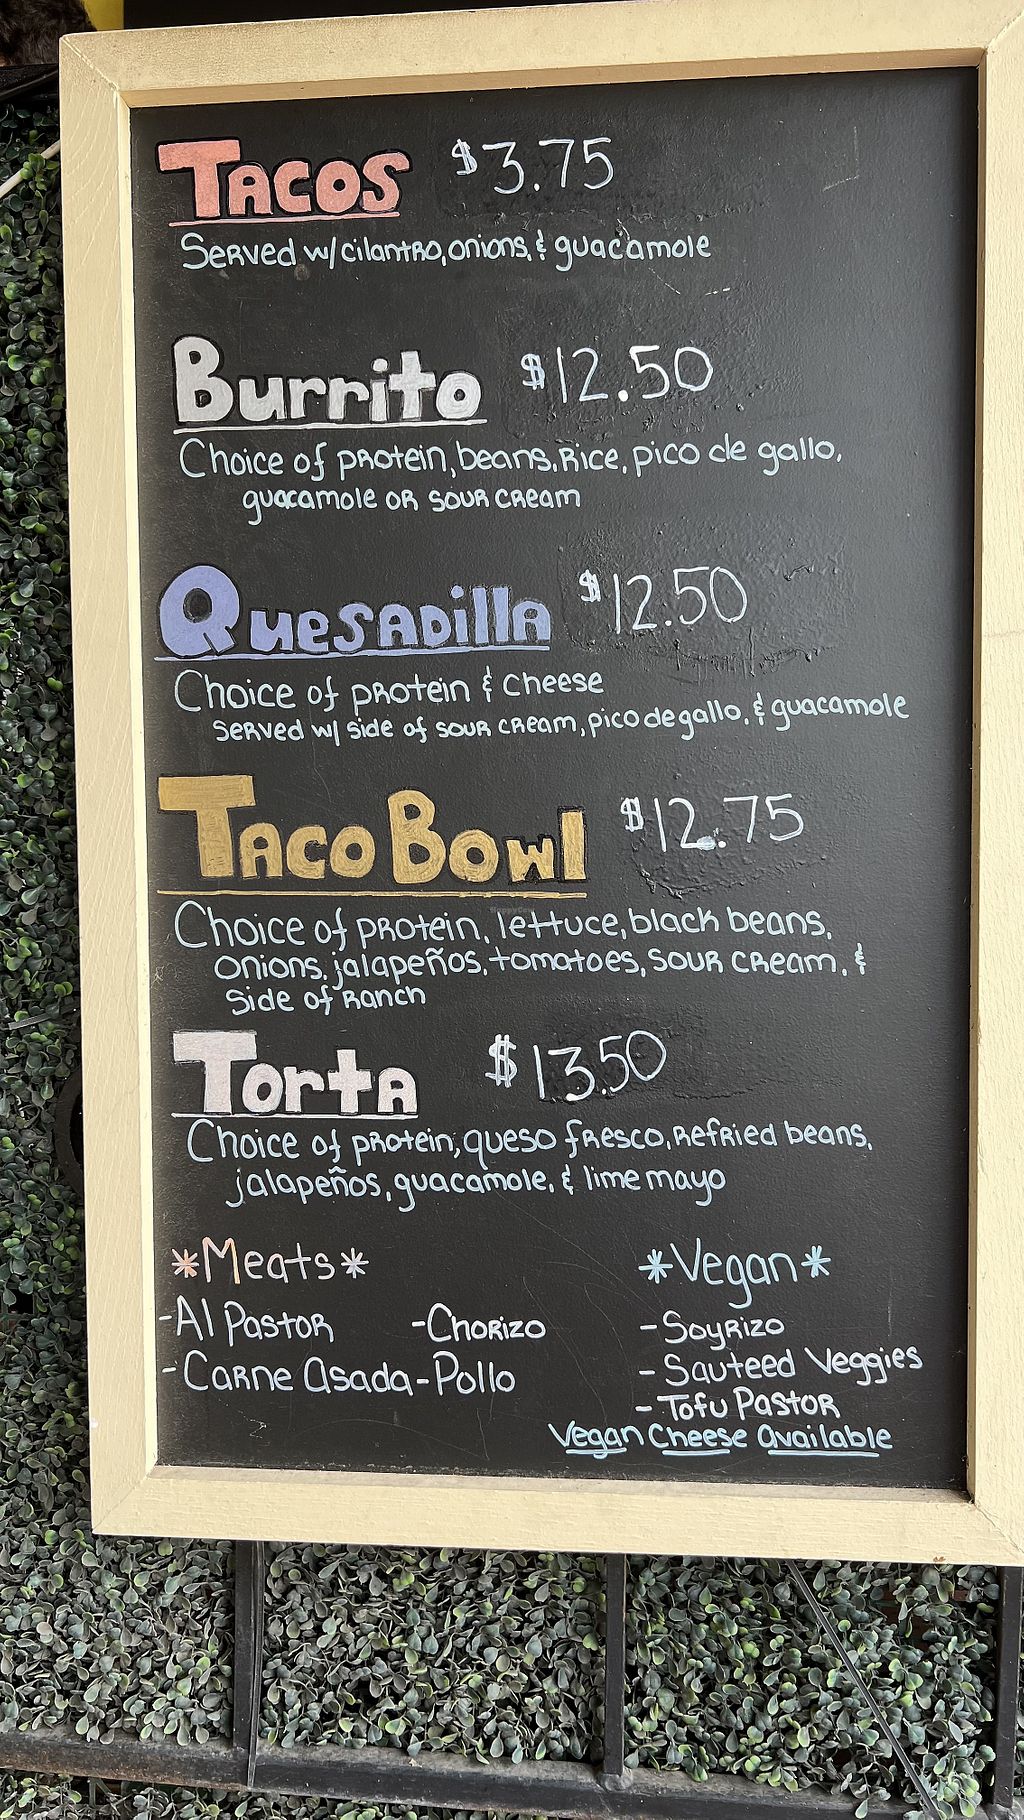 Tacos $3.75
Served w/cilantro, onions, & guacamole
Burrito $12.50
Choice of protein, beans, rice, pico de gallo,
guacamole or sour cream
Quesadilla $12.50
Choice of protein & cheese
served w/ side of sour cream, pico de gallo, & guacamole
Taco Bowl $12.75
Choice of protein, lettuce, black beans,
onions, jalapeños, tomatoes, sour cream, &
side of ranch
Torta $13.50
Choice of protein, queso fresco, refried beans,
jalapeños, guacamole, & lime mayo
*Meats* *Vegan*
-Al Pastor -Chorizo -Soyrizo
-Carne Asada -Pollo -Sauteed Veggies
-Tofu Pastor
Vegan Cheese Available